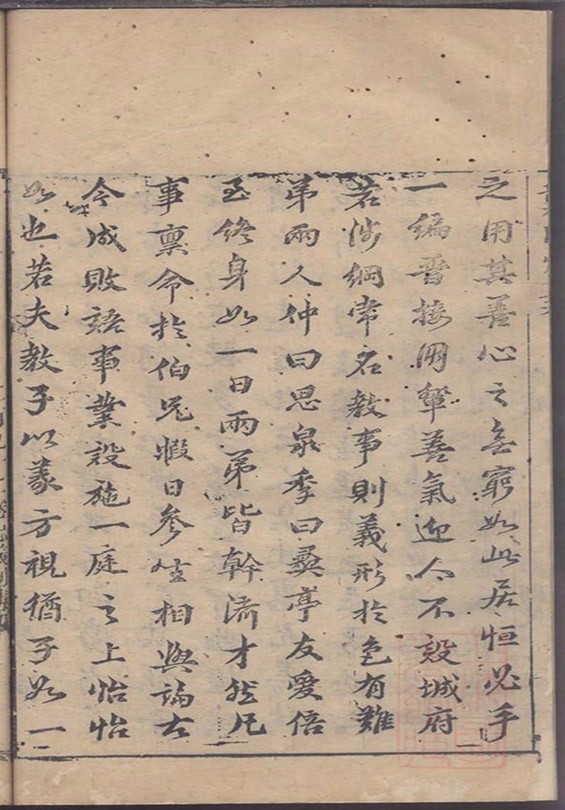 之用其善心之無窮如此居恒必手
一編晋接朋輩善氣迎人不設城府
若涉綱常名教事則義形於色有難
弟兩人仲曰思泉季曰彛亭友愛倍
至終身如一日兩弟皆幹濟才然凡
事禀命於伯兄暇日參坐相與論古
今成敗語事業設施一庭之上怡怡
如也若夫教子以義方視猶子如一